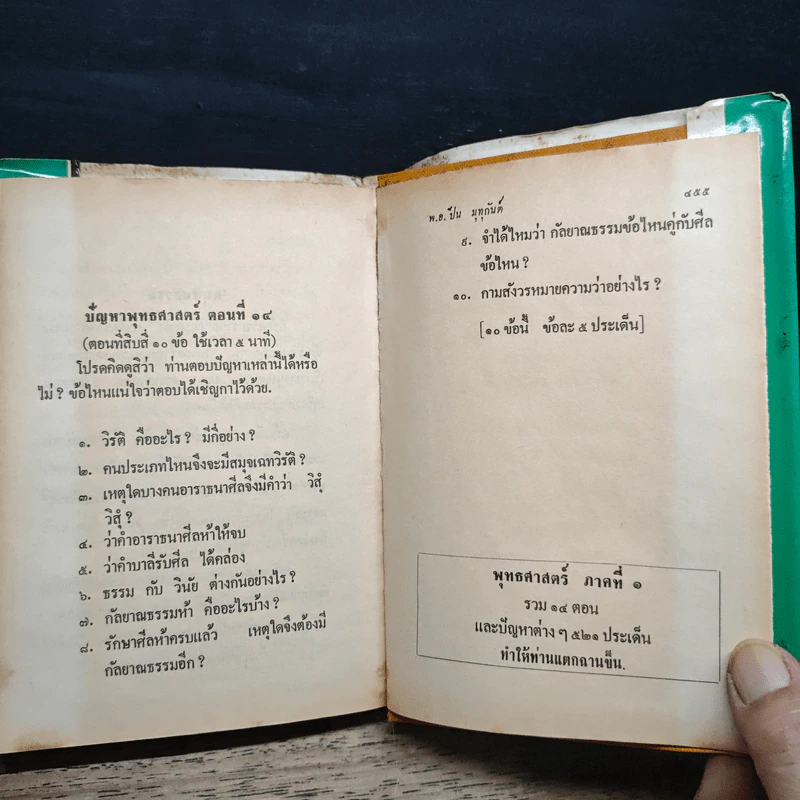 ปัญหาพุทธศาสตร์ ตอนที่ ๑๔
(ตอนที่สิบสี่ ๑๐ ข้อ ใช้เวลา ๕ นาที)
โปรดคิดดูสิว่า ท่านตอบปัญหาเหล่านี้ได้หรือ
ไม่ ? ข้อไหนแน่ใจว่าตอบได้เชิญกาไว้ด้วย.
๑. วิรัติ คืออะไร ? มีกี่อย่าง ?
๒. คนประเภทไหนจึงจะมีสมุจเฉทวิรัติ ?
๓. เหตุใดบางคนอาราธนาศีลจึงมีคำว่า วิสุํ
วิสุํ ?
๔. ว่าคำอาราธนาศีลห้าให้จบ
๕. ว่าคำบาลีรับศีล ได้คล่อง
๖. ธรรม กับ วินัย ต่างกันอย่างไร ?
๗. กัลยาณธรรมห้า คืออะไรบ้าง ?
๘. รักษาศีลห้าครบแล้ว เหตุใดจึงต้องมี
กัลยาณธรรมอีก ?
พ.อ.ปิ่น มุทุกันต์ ๔๕๕
๙. จำได้ไหมว่า กัลยาณธรรมข้อไหนคู่กับศีล
ข้อไหน ?
๑๐. กามสังวรหมายความว่าอย่างไร ?
[๑๐ ข้อนี้ ข้อละ ๕ ประเด็น]
พุทธศาสตร์ ภาคที่ ๑
รวม ๑๔ ตอน
และปัญหาต่าง ๆ ๕๒๑ ประเด็น
ทำให้ท่านแตกฉานขึ้น.